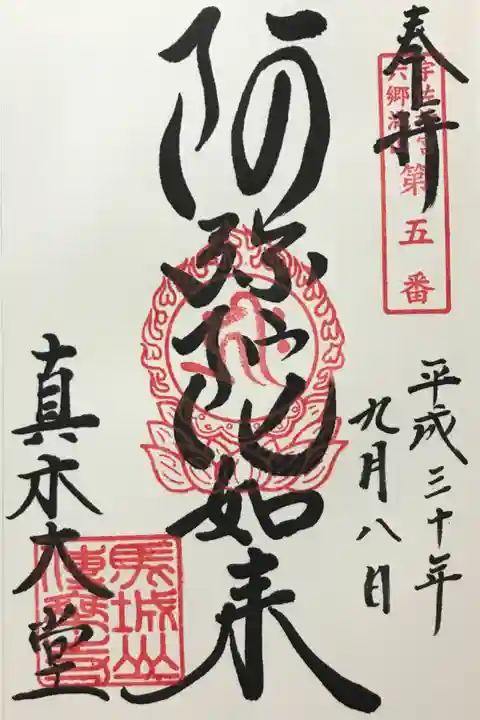 奉拝
第五番
平成三十年
九月八日
阿弥陀如来
真木大堂
馬城山